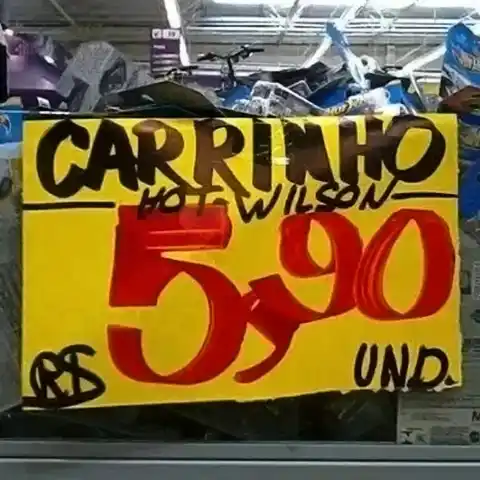 CARRINHO
HOT WILSON
5,90
R$ UND.